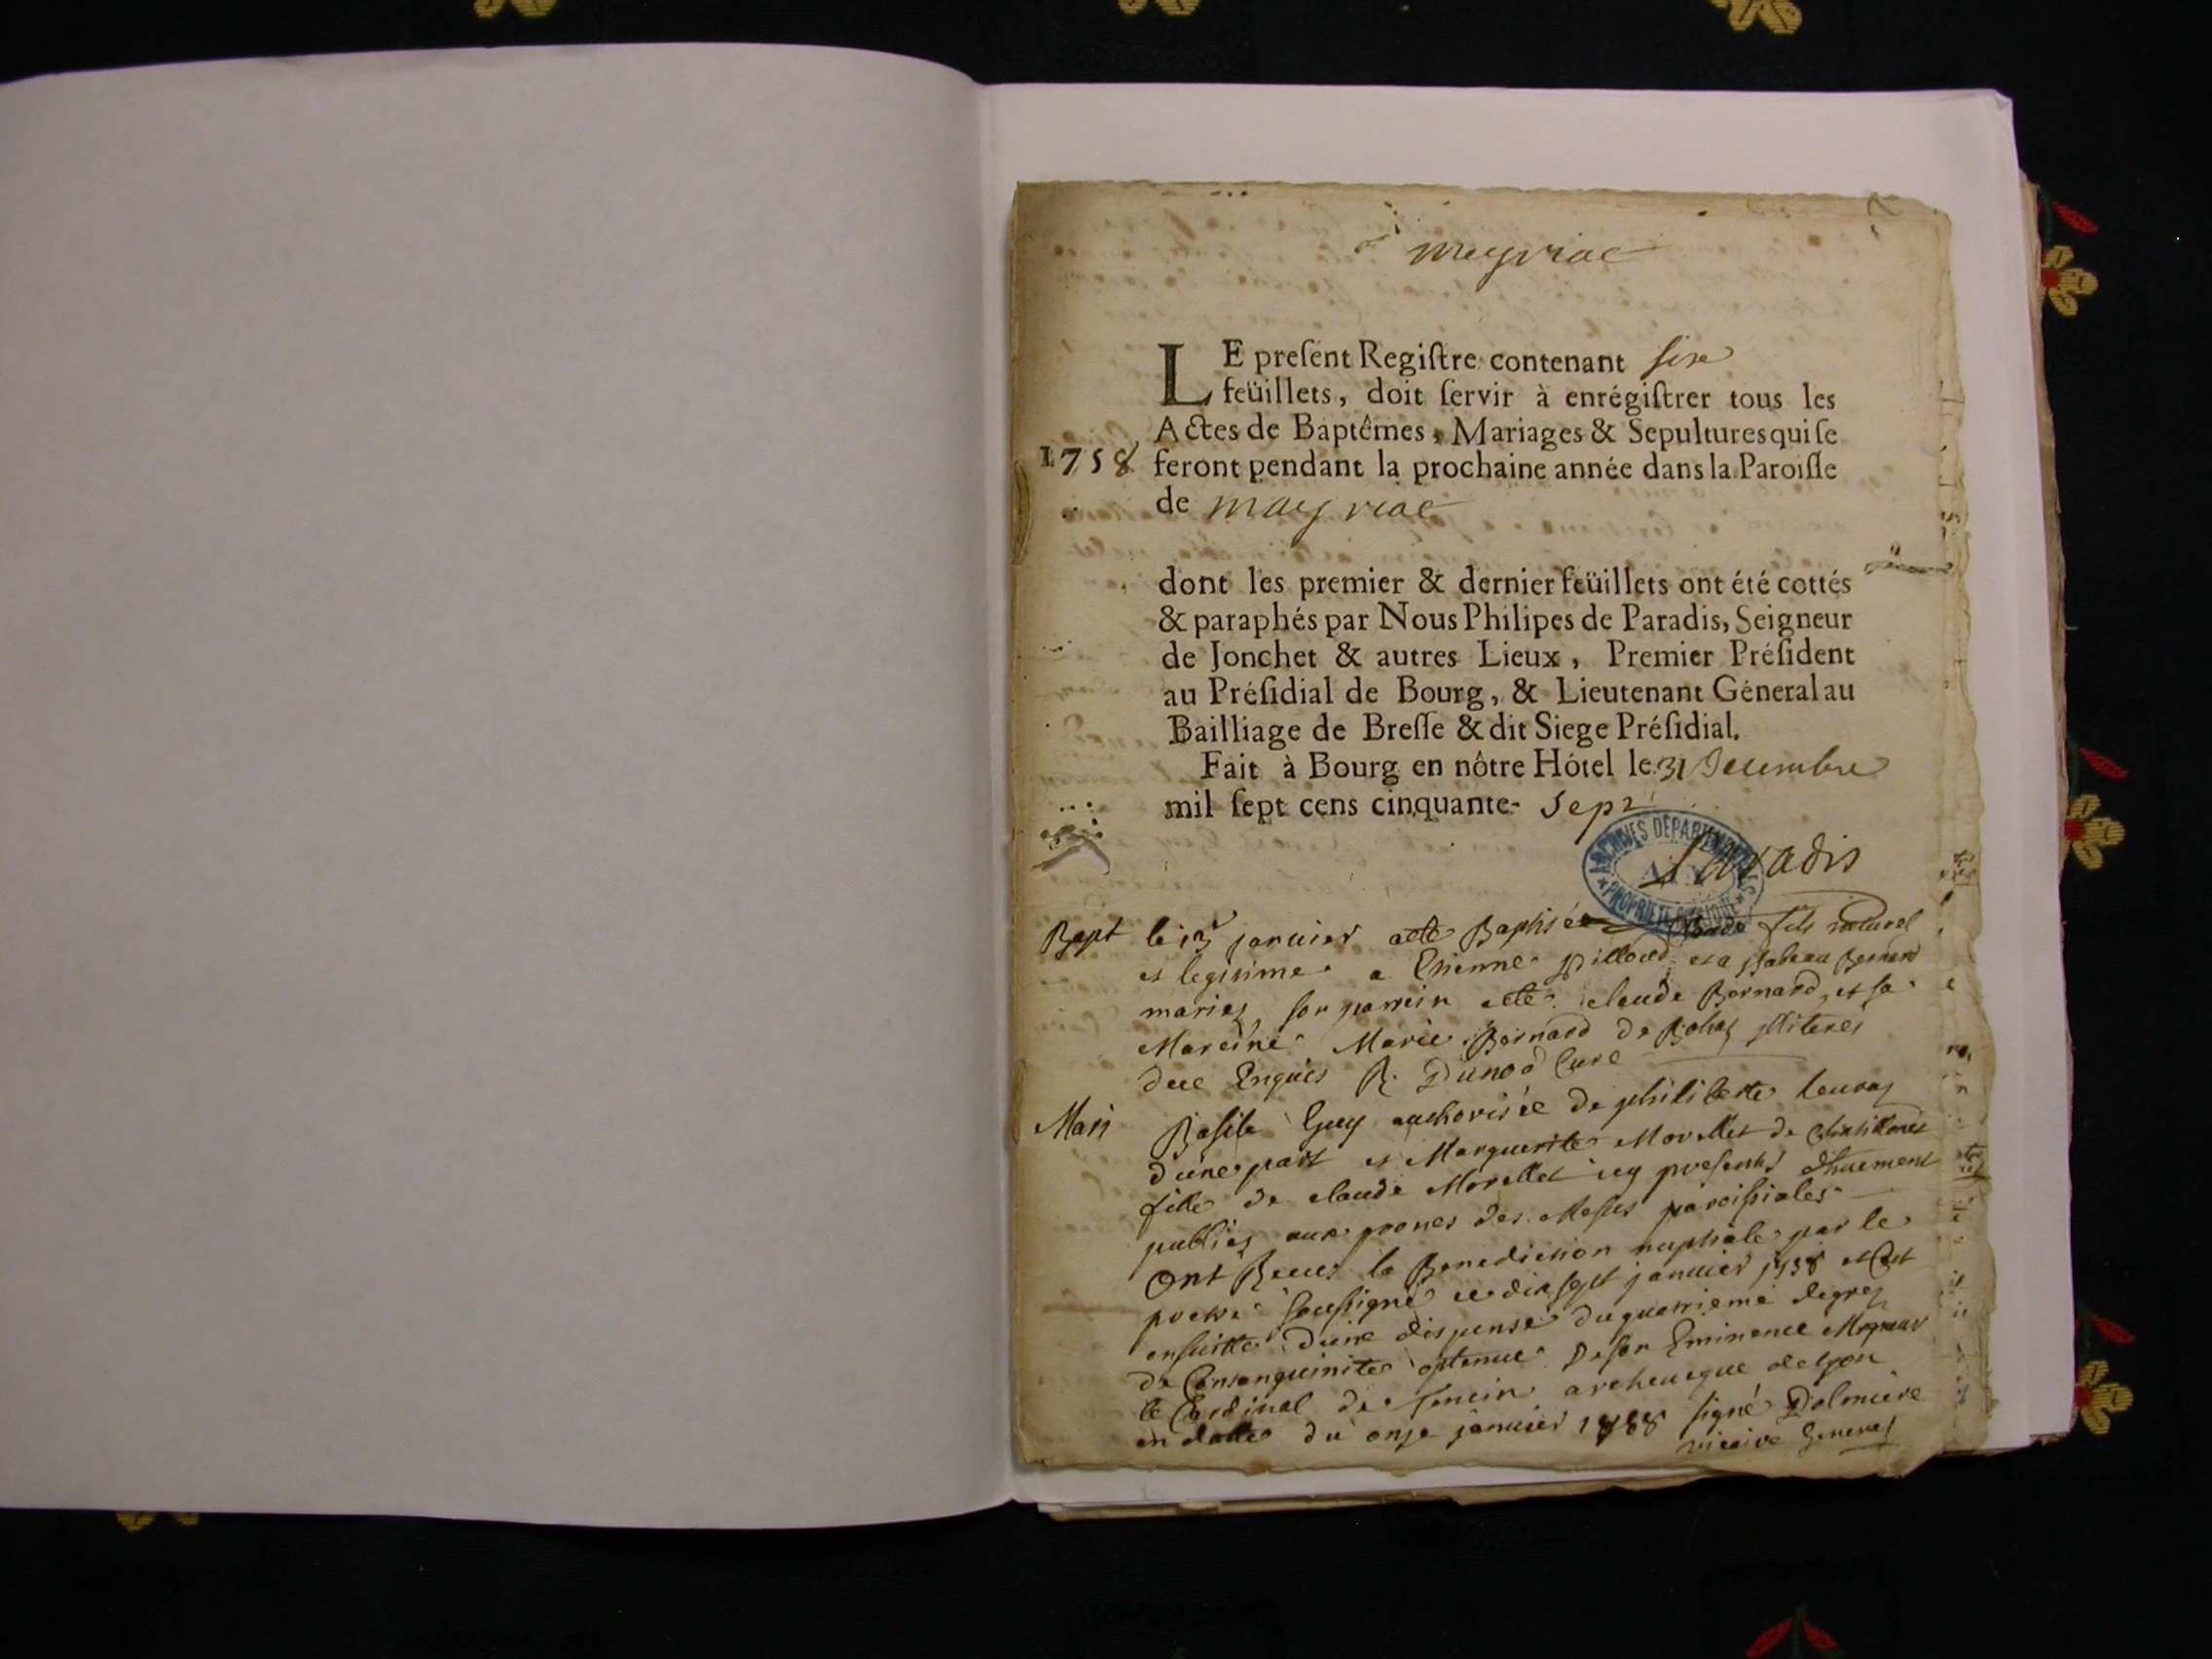 meyriac
LE preſent Regiſtre contenant six
feüillets, doit ſervir à enrégiſtrer tous les
Actes de Baptêmes, Mariages & Sepultures qui ſe
1758 feront pendant la prochaine année dans la Paroiſſe
de mayriac
dont les premier & dernier feüillets ont été cottés
& paraphés par Nous Philipes de Paradis, Seigneur
de Jonchet & autres Lieux, Premier Préſident
au Préſidial de Bourg, & Lieutenant Géneral au
Bailliage de Breſſe & dit Siege Préſidial.
Fait à Bourg en nôtre Hótel le 31 Decembre
mil ſept cens cinquante- sept
ARCHIVES DÉPARTEMENTALES
AIN
PROPRIÉTÉ PUBLIQUE
Paradis
Bapt le 13 janvier a eté Baptisé Claude fils naturel
et legitime a Etienne pilloud et a ysabeau Bernard
mariez, son parrein eté claude Bernard, et sa
Mareine Marie Bernard de Bohaz jlliterés
due Enquis R. Dunod Curé
Mari Basile Guy authorisée de philiberte
d'une part et Marguerite Morellet de
fille de claude Morellet icy presents dhuement
publiez aux prones des Messes paroissiales
Ont Receus la Benediction nuptiale par le
soussigné ce dix sept janvier 1758 et
ensuitte d'une dispense du quatrieme degrez
de Consanguinite optenue de son Eminence
le Cardinal de Tencin archeveque de lyon
en datte du onze janvier signé Dolmiere
vicaire General